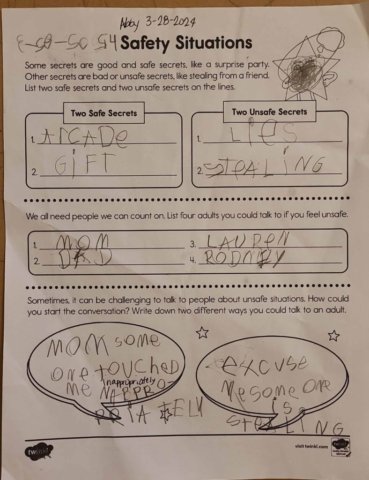 Abby 3-28-2024
3-28-2024 Safety Situations
Some secrets are good and safe secrets, like a surprise party.
Other secrets are bad or unsafe secrets, like stealing from a friend.
List two safe secrets and two unsafe secrets on the lines.
Two Safe Secrets
1. ArCADe
2. GiFT
Two Unsafe Secrets
1. LiES
2. STEALiNG
We all need people we can count on. List four adults you could talk to if you feel unsafe.
1. MOM
2. DAD
3. LAUREN
4. RODNEY
Sometimes, it can be challenging to talk to people about unsafe situations. How could
you start the conversation? Write down two different ways you could talk to an adult.
MOM some
one touched
me inappropriately
NAPPRO-
PRiATELY
excuse
me some one
is
STEALiNG
twinkl
visit twinkl.com